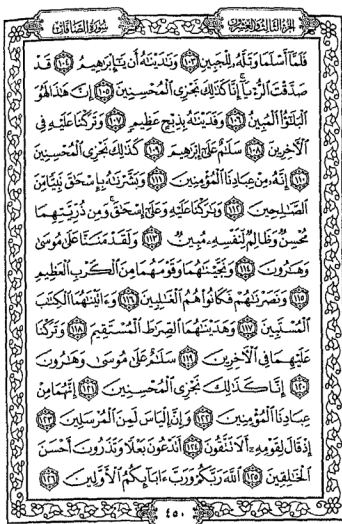 سورة الصافات
الجزء الثالث والعشرون
فَلَمَّآ أَسْلَمَا وَتَلَّهُۥ لِلْجَبِينِ ١٠٣ وَنَٰدَيْنَٰهُ أَن يَٰٓإِبْرَٰهِيمُ ١٠٤ قَدْ
صَدَّقْتَ ٱلرُّءْيَآ ۚ إِنَّا كَذَٰلِكَ نَجْزِى ٱلْمُحْسِنِينَ ١٠٥ إِنَّ هَٰذَا لَهُوَ
ٱلْبَلَٰٓؤُا۟ ٱلْمُبِينُ ١٠٦ وَفَدَيْنَٰهُ بِذِبْحٍ عَظِيمٍ ١٠٧ وَتَرَكْنَا عَلَيْهِ فِى
ٱلْءَاخِرِينَ ١٠٨ سَلَٰمٌ عَلَىٰٓ إِبْرَٰهِيمَ ١٠٩ كَذَٰلِكَ نَجْزِى ٱلْمُحْسِنِينَ
١١٠ إِنَّهُۥ مِنْ عِبَادِنَا ٱلْمُؤْمِنِينَ ١١١ وَبَشَّرْنَٰهُ بِإِسْحَٰقَ نَبِيًّا مِّنَ
ٱلصَّٰلِحِينَ ١١٢ وَبَٰرَكْنَا عَلَيْهِ وَعَلَىٰٓ إِسْحَٰقَ ۚ وَمِن ذُرِّيَّتِهِمَا
مُحْسِنٌ وَظَالِمٌ لِّنَفْسِهِۦ مُبِينٌ ١١٣ وَلَقَدْ مَنَنَّا عَلَىٰ مُوسَىٰ
وَهَٰرُونَ ١١٤ وَنَجَّيْنَٰهُمَا وَقَوْمَهُمَا مِنَ ٱلْكَرْبِ ٱلْعَظِيمِ
١١٥ وَنَصَرْنَٰهُمْ فَكَانُوا۟ هُمُ ٱلْغَٰلِبِينَ ١١٦ وَءَاتَيْنَٰهُمَا ٱلْكِتَٰبَ
ٱلْمُسْتَبِينَ ١١٧ وَهَدَيْنَٰهُمَا ٱلصِّرَٰطَ ٱلْمُسْتَقِيمَ ١١٨ وَتَرَكْنَا
عَلَيْهِمَا فِى ٱلْءَاخِرِينَ ١١٩ سَلَٰمٌ عَلَىٰ مُوسَىٰ وَهَٰرُونَ
١٢٠ إِنَّا كَذَٰلِكَ نَجْزِى ٱلْمُحْسِنِينَ ١٢١ إِنَّهُمَا مِنْ
عِبَادِنَا ٱلْمُؤْمِنِينَ ١٢٢ وَإِنَّ إِلْيَاسَ لَمِنَ ٱلْمُرْسَلِينَ ١٢٣
إِذْ قَالَ لِقَوْمِهِۦٓ أَلَا تَتَّقُونَ ١٢٤ أَتَدْعُونَ بَعْلًا وَتَذَرُونَ أَحْسَنَ
ٱلْخَٰلِقِينَ ١٢٥ ٱللَّهَ رَبَّكُمْ وَرَبَّ ءَابَآئِكُمُ ٱلْأَوَّلِينَ ١٢٦
٤٥٠